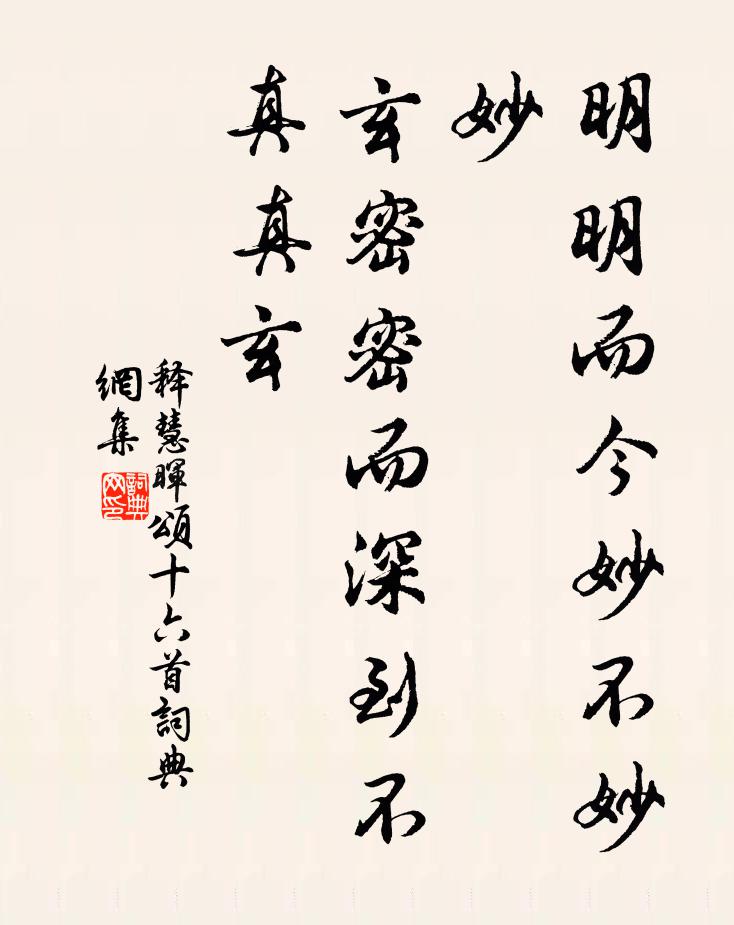 明明而今妙不妙
妙
玄密密而深到不
真真玄
释慧暉頌十六首詞典
網集
詞典
网印